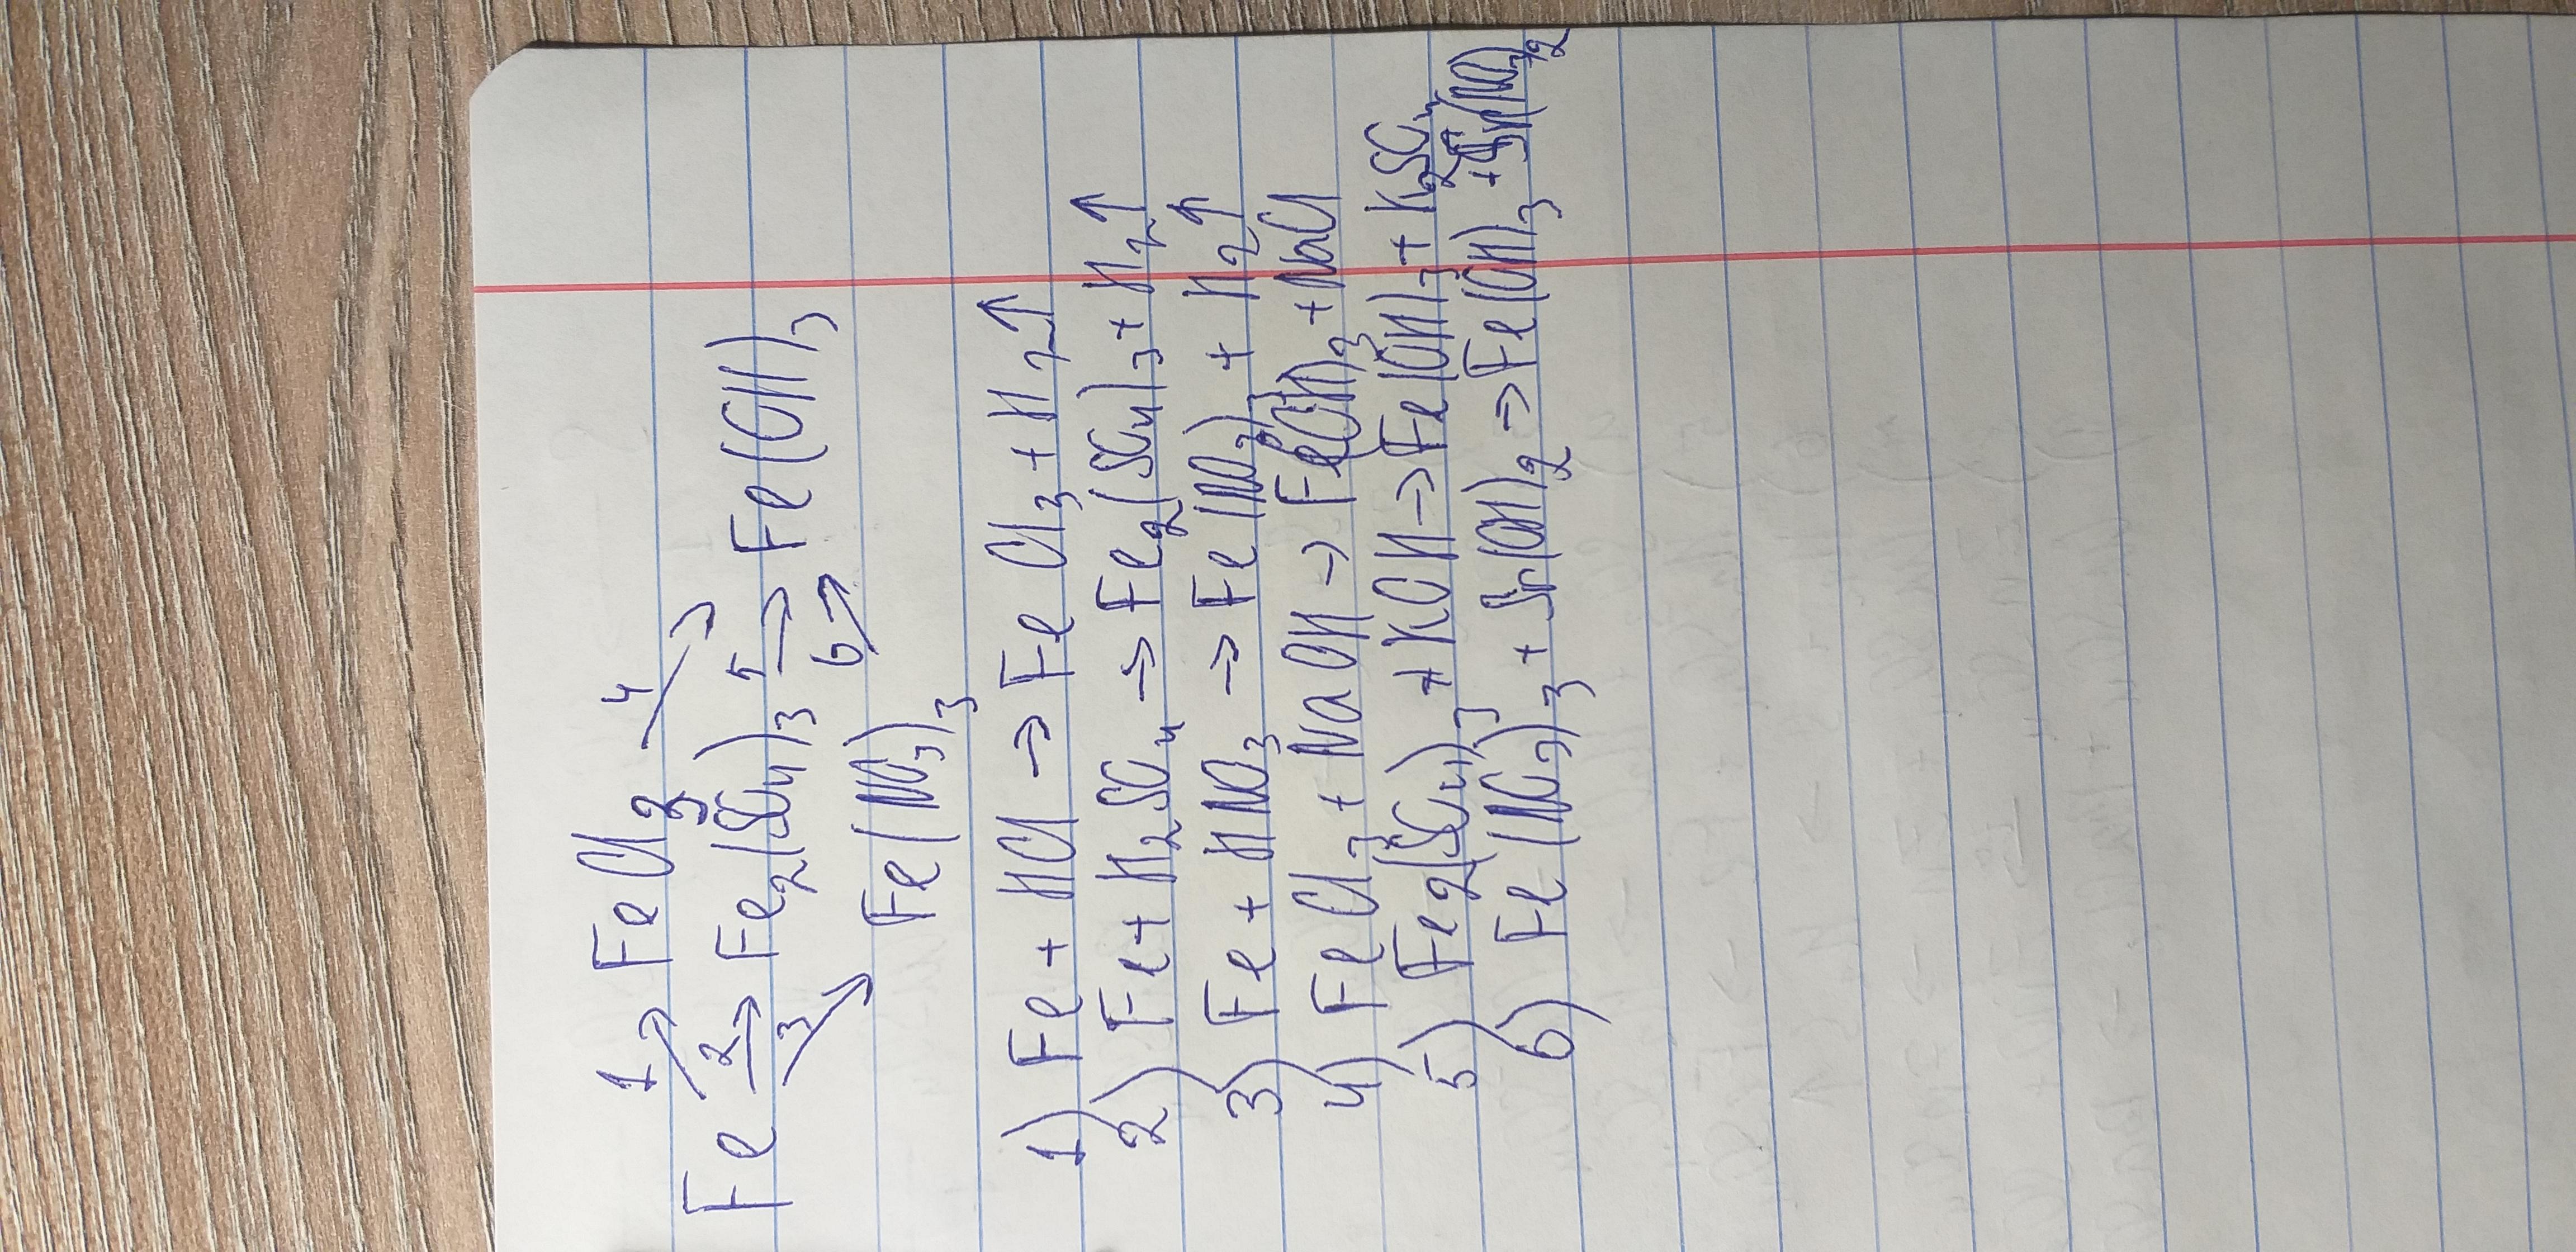 1 FeCl3 4
Fe 2 Fe2(SO4)3 5 → Fe(OH)3
3 Fe(NO3)3 6
1) Fe + HCl → FeCl3 + H2↑
2) Fe + H2SO4 → Fe2(SO4)3 + H2↑
3) Fe + HNO3 → Fe(NO3)3 + H2↑
4) FeCl3 + NaOH → Fe(OH)3 + NaCl
5) Fe2(SO4)3 + KOH → Fe(OH)3 + K2SO4
6) Fe(NO3)3 + Sr(OH)2 → Fe(OH)3 + Sr(NO3)2